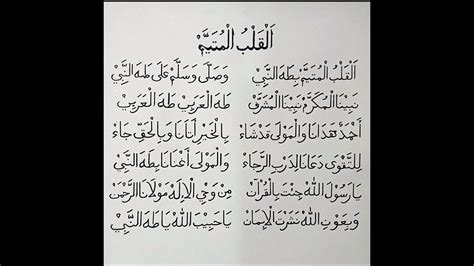 اَلْقَلْبُ الْمُتَيَّمْ
اَلْقَلْبُ الْمُتَيَّمْ بِطٰهَ النَّبِيْ وَصَلَّى وَسَلَّمْ عَلَى طٰهَ النَّبِيْ
نَبِيْنَا الْمُكَرَّمْ نَبِيْنَا الْمُشَرَّفْ طٰهَ الْعَرَبِيْ طٰهَ الْعَرَبِيْ
أَحْمَدْ هَدَانَا وَالْمَوْلَى قَدْ شَاءْ بِالْخَيْرِ أَتَانَا وَبِالْحَقِّ جَاءْ
لِلتَّقْوَى دَعَانَا لِدَرْبِ الرَّجَاءْ وَالْمَوْلَى أَغْنَانَا بِطٰهَ النَّبِيْ
يَا رَسُوْلَ اللهْ جِئْتَ بِالْقُرْآنْ مِنْ وَحْيِ الْإِلٰهِ مَوْلَانَا الرَّحْمٰنْ
وَبِعَوْنِ اللهْ نَشَرْتَ الْإِيْمَانْ يَا حَبِيْبَ اللهْ يَا طٰهَ النَّبِيْ